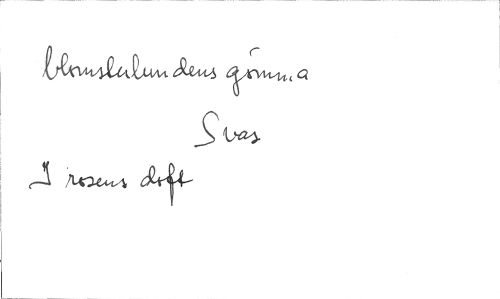 blomsterlundens gömma
Svas
I rosens doft